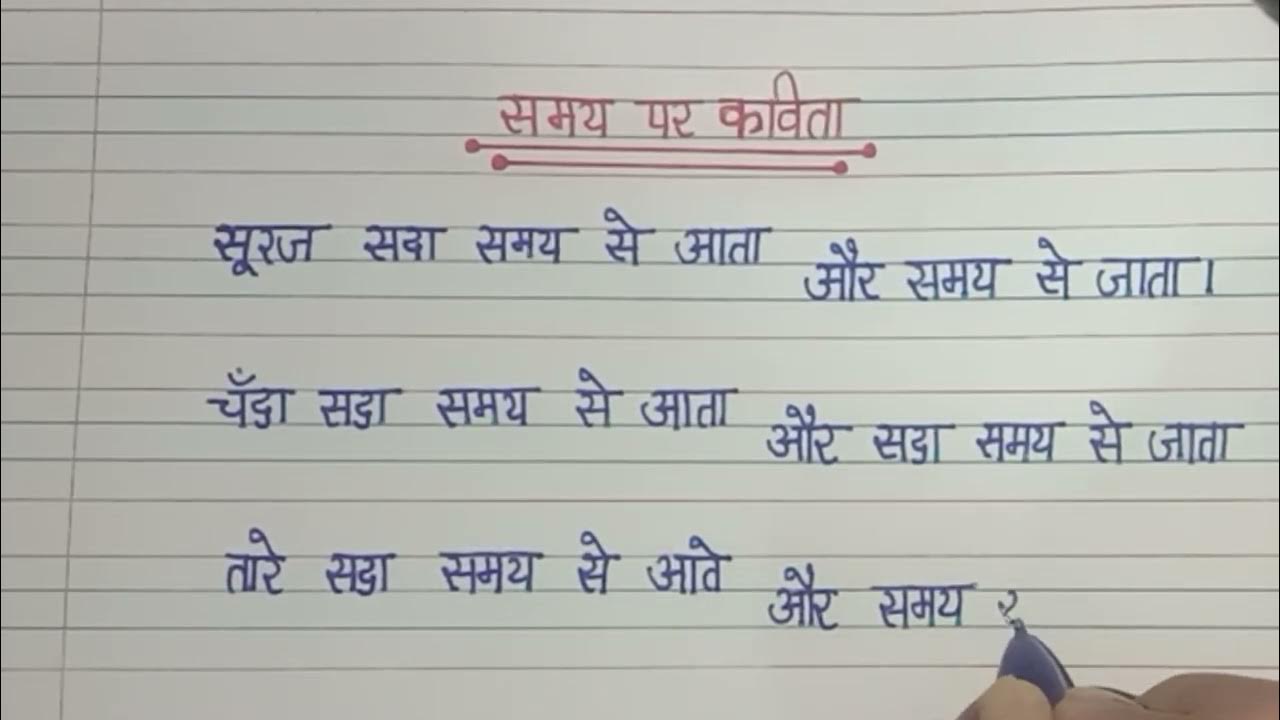 समय पर कविता
सूरज सदा समय से आता और समय से जाता।
चँदा सदा समय से आता और सदा समय से जाता
तारे सदा समय से आते और समय